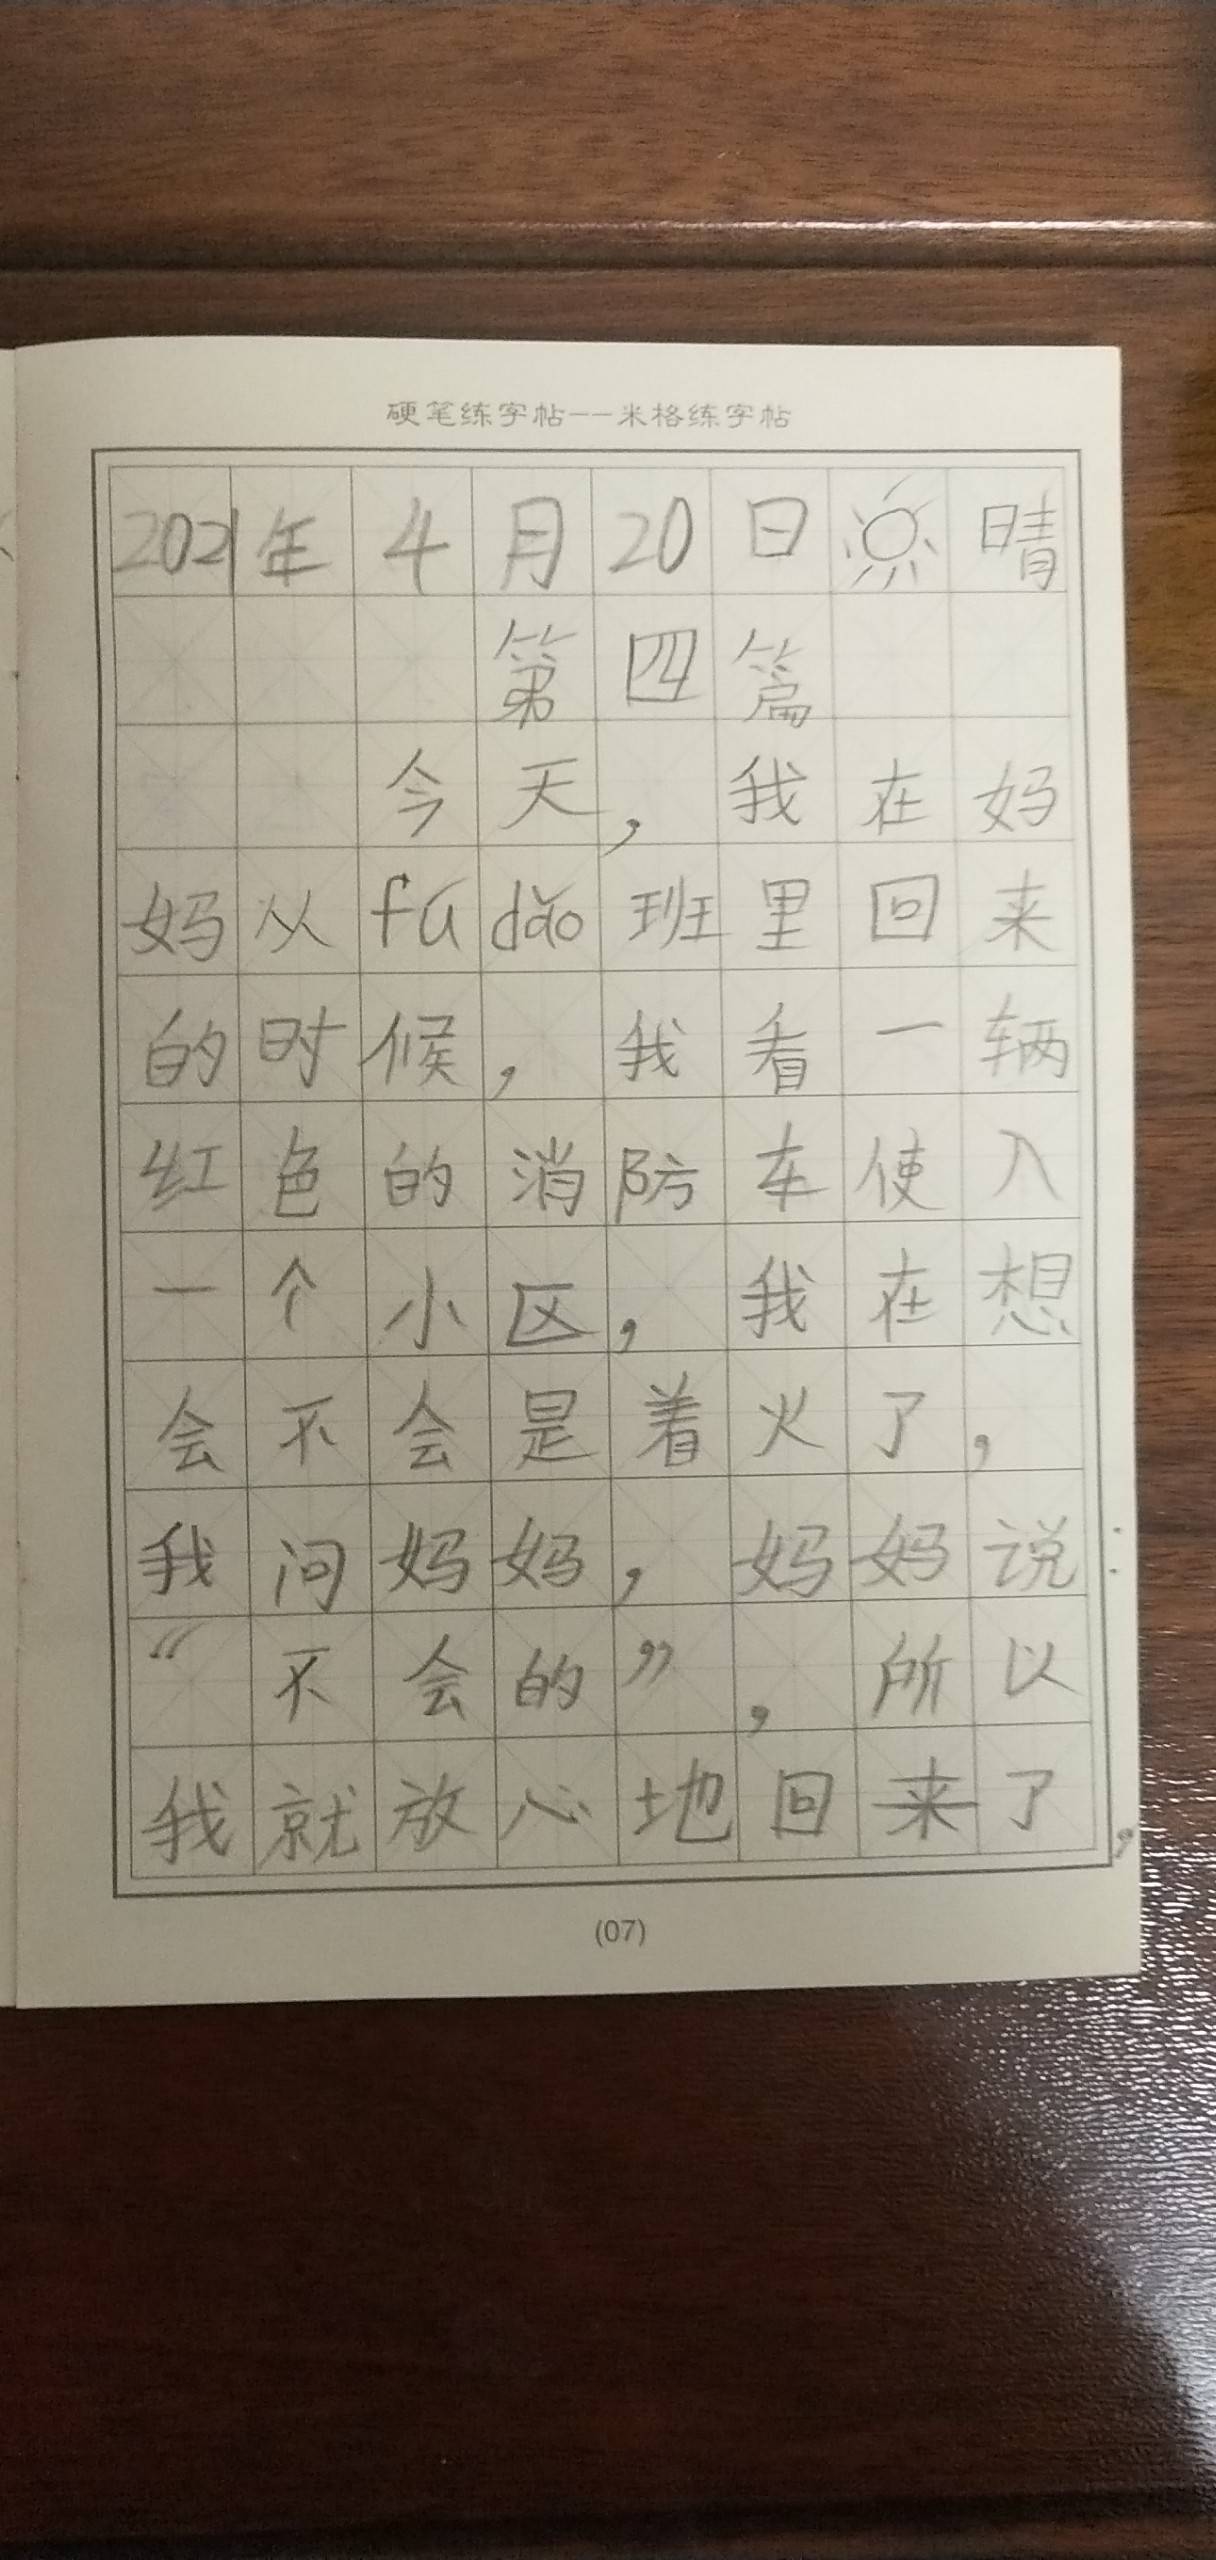 硬笔练字帖--米格练字帖
2021年4月20日 晴
第四篇
今天，我在妈
妈从fǔdǎo班里回来
的时候，我看一辆
红色的消防车使入
一个小区，我在想
会不会是着火了，
我问妈妈，妈妈说：
“不会的”，所以
我就放心地回来了，
(07)